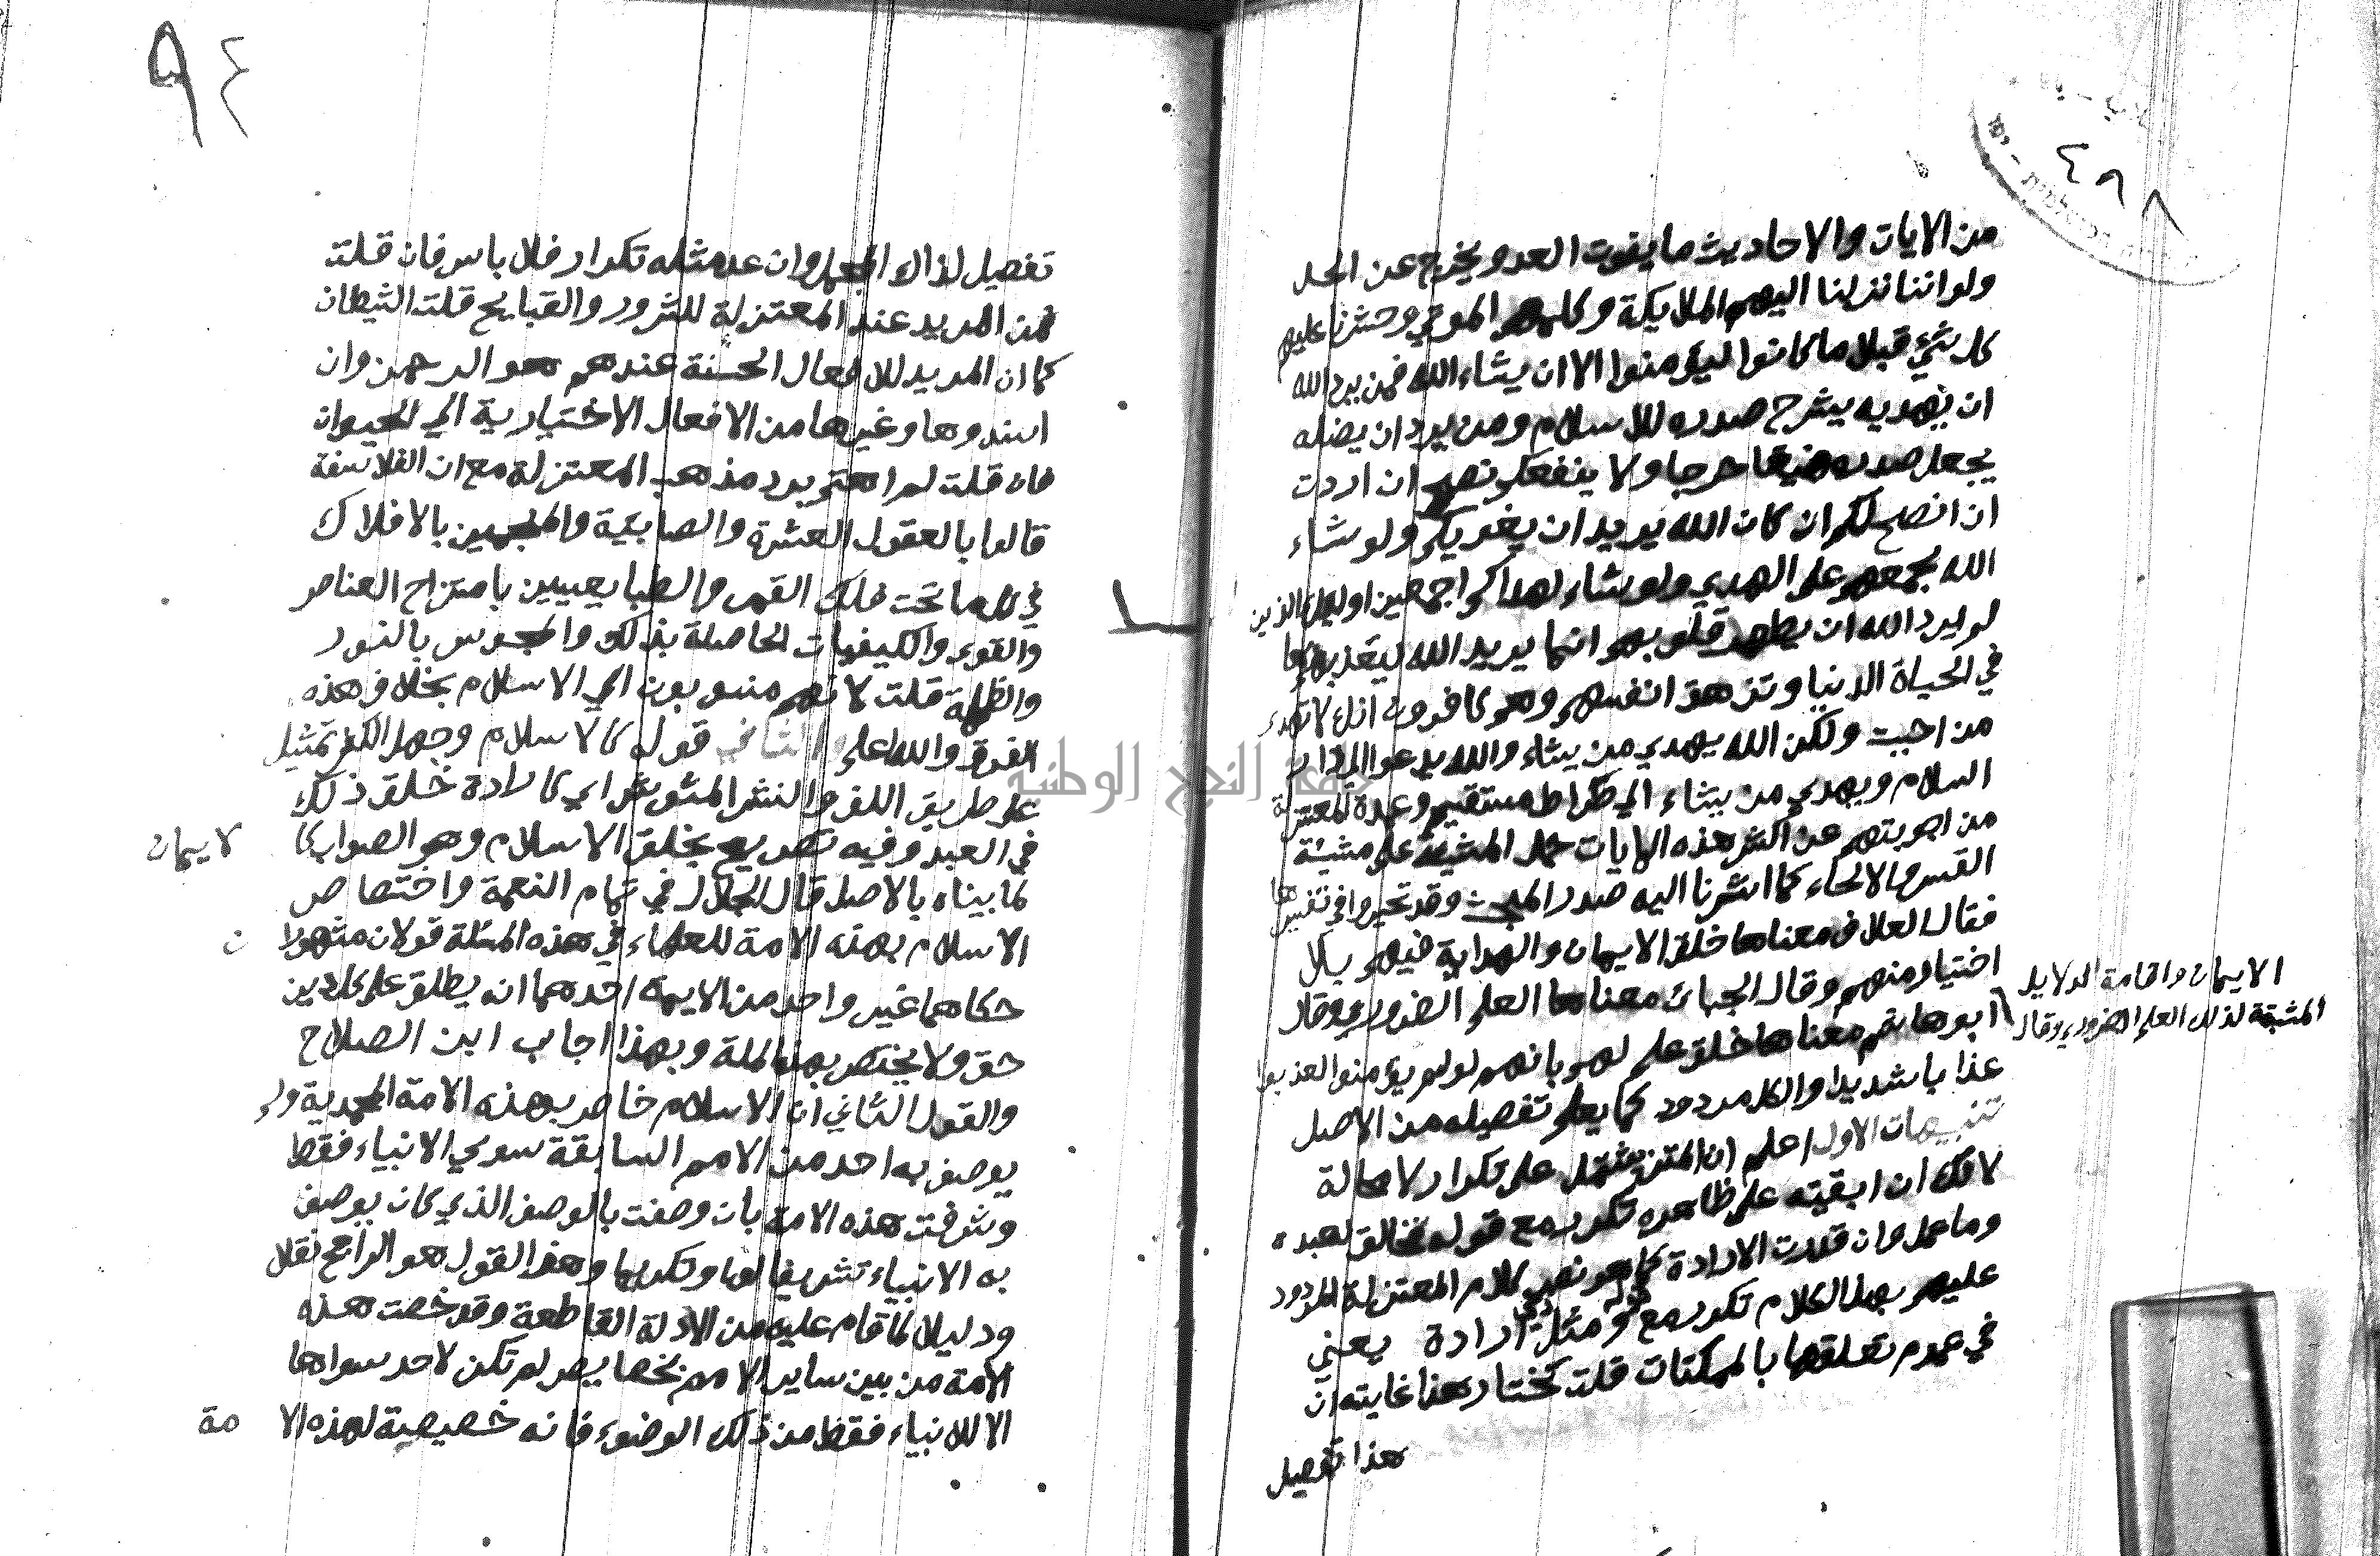 من الايات والاحاديث ما يفوت العد ويخرج عن الحد
ولو اننا نزلنا اليهم الملايكة وكلمهم الموتي وحشرنا عليهم
كل شيء قبلا ما كانوا ليؤمنوا الا ان يشاء الله فمن يرد الله
ان يهديه يشرح صدره للاسلام ومن يرد ان يضله
يجعل صدره ضيقا حرجا ولا ينفعكم نصحي ان اردت
ان انصح لكم ان كان الله يريد ان يغويكم ولو شاء
الله لجمعهم على الهدي ولو شاء لهداكم اجمعين اوليك الذين
لم يرد الله ان يطهر قلوبهم انما يريد الله ليعذبهم بها
في الحياة الدنيا وتزهق انفسهم وهم كافرون انك لا تهدي
من احببت ولكن الله يهدي من يشاء والله يدعو الي دار
السلام ويهدي من يشاء الي صراط مستقيم وعمدة المعتزلة
من اجوبتهم عن اكثر هذه الايات حمل المشيئة على مشيئة
القسر والالجاء كما اشرنا اليه صدر المبحث وقد تحيروا في تفسيرها
فقال العلاف معناها خلق الايمان والهداية فيهم بلا
اختيار منهم وقال الجبائ معناها العلم الضروري وقال
الايمان واقامة الدلايل
المثبتة لذلك العلم الضروري وقال
ابو هاشم معناها خلق علم لهم بانهم لو لم يؤمنوا لعذبوا
عذابا شديدا والكل مردود كما يعلم تفصيله من الاصل
تنبيهات الاول اعلم ان المتن مشتمل على تكرار لا محالة
لانك ان ابقيته على ظاهره تكرر مع قوله فخالق لعبده
وما عمل وان قدرت الارادة كما هو نص كلام المعتزلة المردود
عليهم بهذا الكلام تكرر مع قوله ومثل ذي ارادة يعني
في عموم تعلقها بالممكنات قلت نختار هنا غايته ان
هذا تفصيل
٩٤
تفصيل لذاك المجمل وان عد مثله تكرار فلا باس فان قلت
فمن المريد عند المعتزلة للشرور والقبايح قلت الشيطان
كما ان المريد للافعال الحسنة عندهم هو الرحمن وان
اسندوها وغيرها من الافعال الاختيارية الي الحيوان
فان قلت لم اهتم برد مذهب المعتزلة مع ان الفلاسفة
قالوا بالعقول العشرة والصابئية والمنجمين بالافلاك
في كل ما تحت فلك القمر والطبايعيين بامتزاج العناصر
والقوي والكيفيات الحاصلة بذلك والمجوس بالنور
والظلمة قلت لانهم منسوبون الي الاسلام بخلاف هذه
الفرق والله اعلم والثاني قوله كالاسلام وجهل الكفر تمثيل
على طريق اللف والنشر المشوش اي كارادة خلق ذلك
في العبد وفيه تصريح بخلق الاسلام وهو الصواب كالايمان
لما بيناه بالاصل قال الجلال في تمام النعمة واختصاص
الاسلام بهذه الامة للعلماء في هذه المسئلة قولان مشهوران
حكاهما غير واحد من الايمة احدهما انه يطلق على كل دين
حق ولا يختص بهذه الملة وبهذا اجاب ابن الصلاح
والقول الثاني ان الاسلام خاص بهذه الامة المحمدية ولم
يوصف به احد من الامم السابقة سوي الانبياء فقط
وشرفت هذه الامة بان وصفت بالوصف الذي كان يوصف
به الانبياء تشريفا لها وتكريما وهذا القول هو الراجح نقلا
ودليلا لما قام عليه من الادلة القاطعة وقد خصت هذه
الامة من بين ساير الامم بخصايص لم تكن لاحد سواها
الا للانبياء فقط من ذلك الوضوء فانه خصيصية لهذه الامة
جامعة النجاح الوطنية